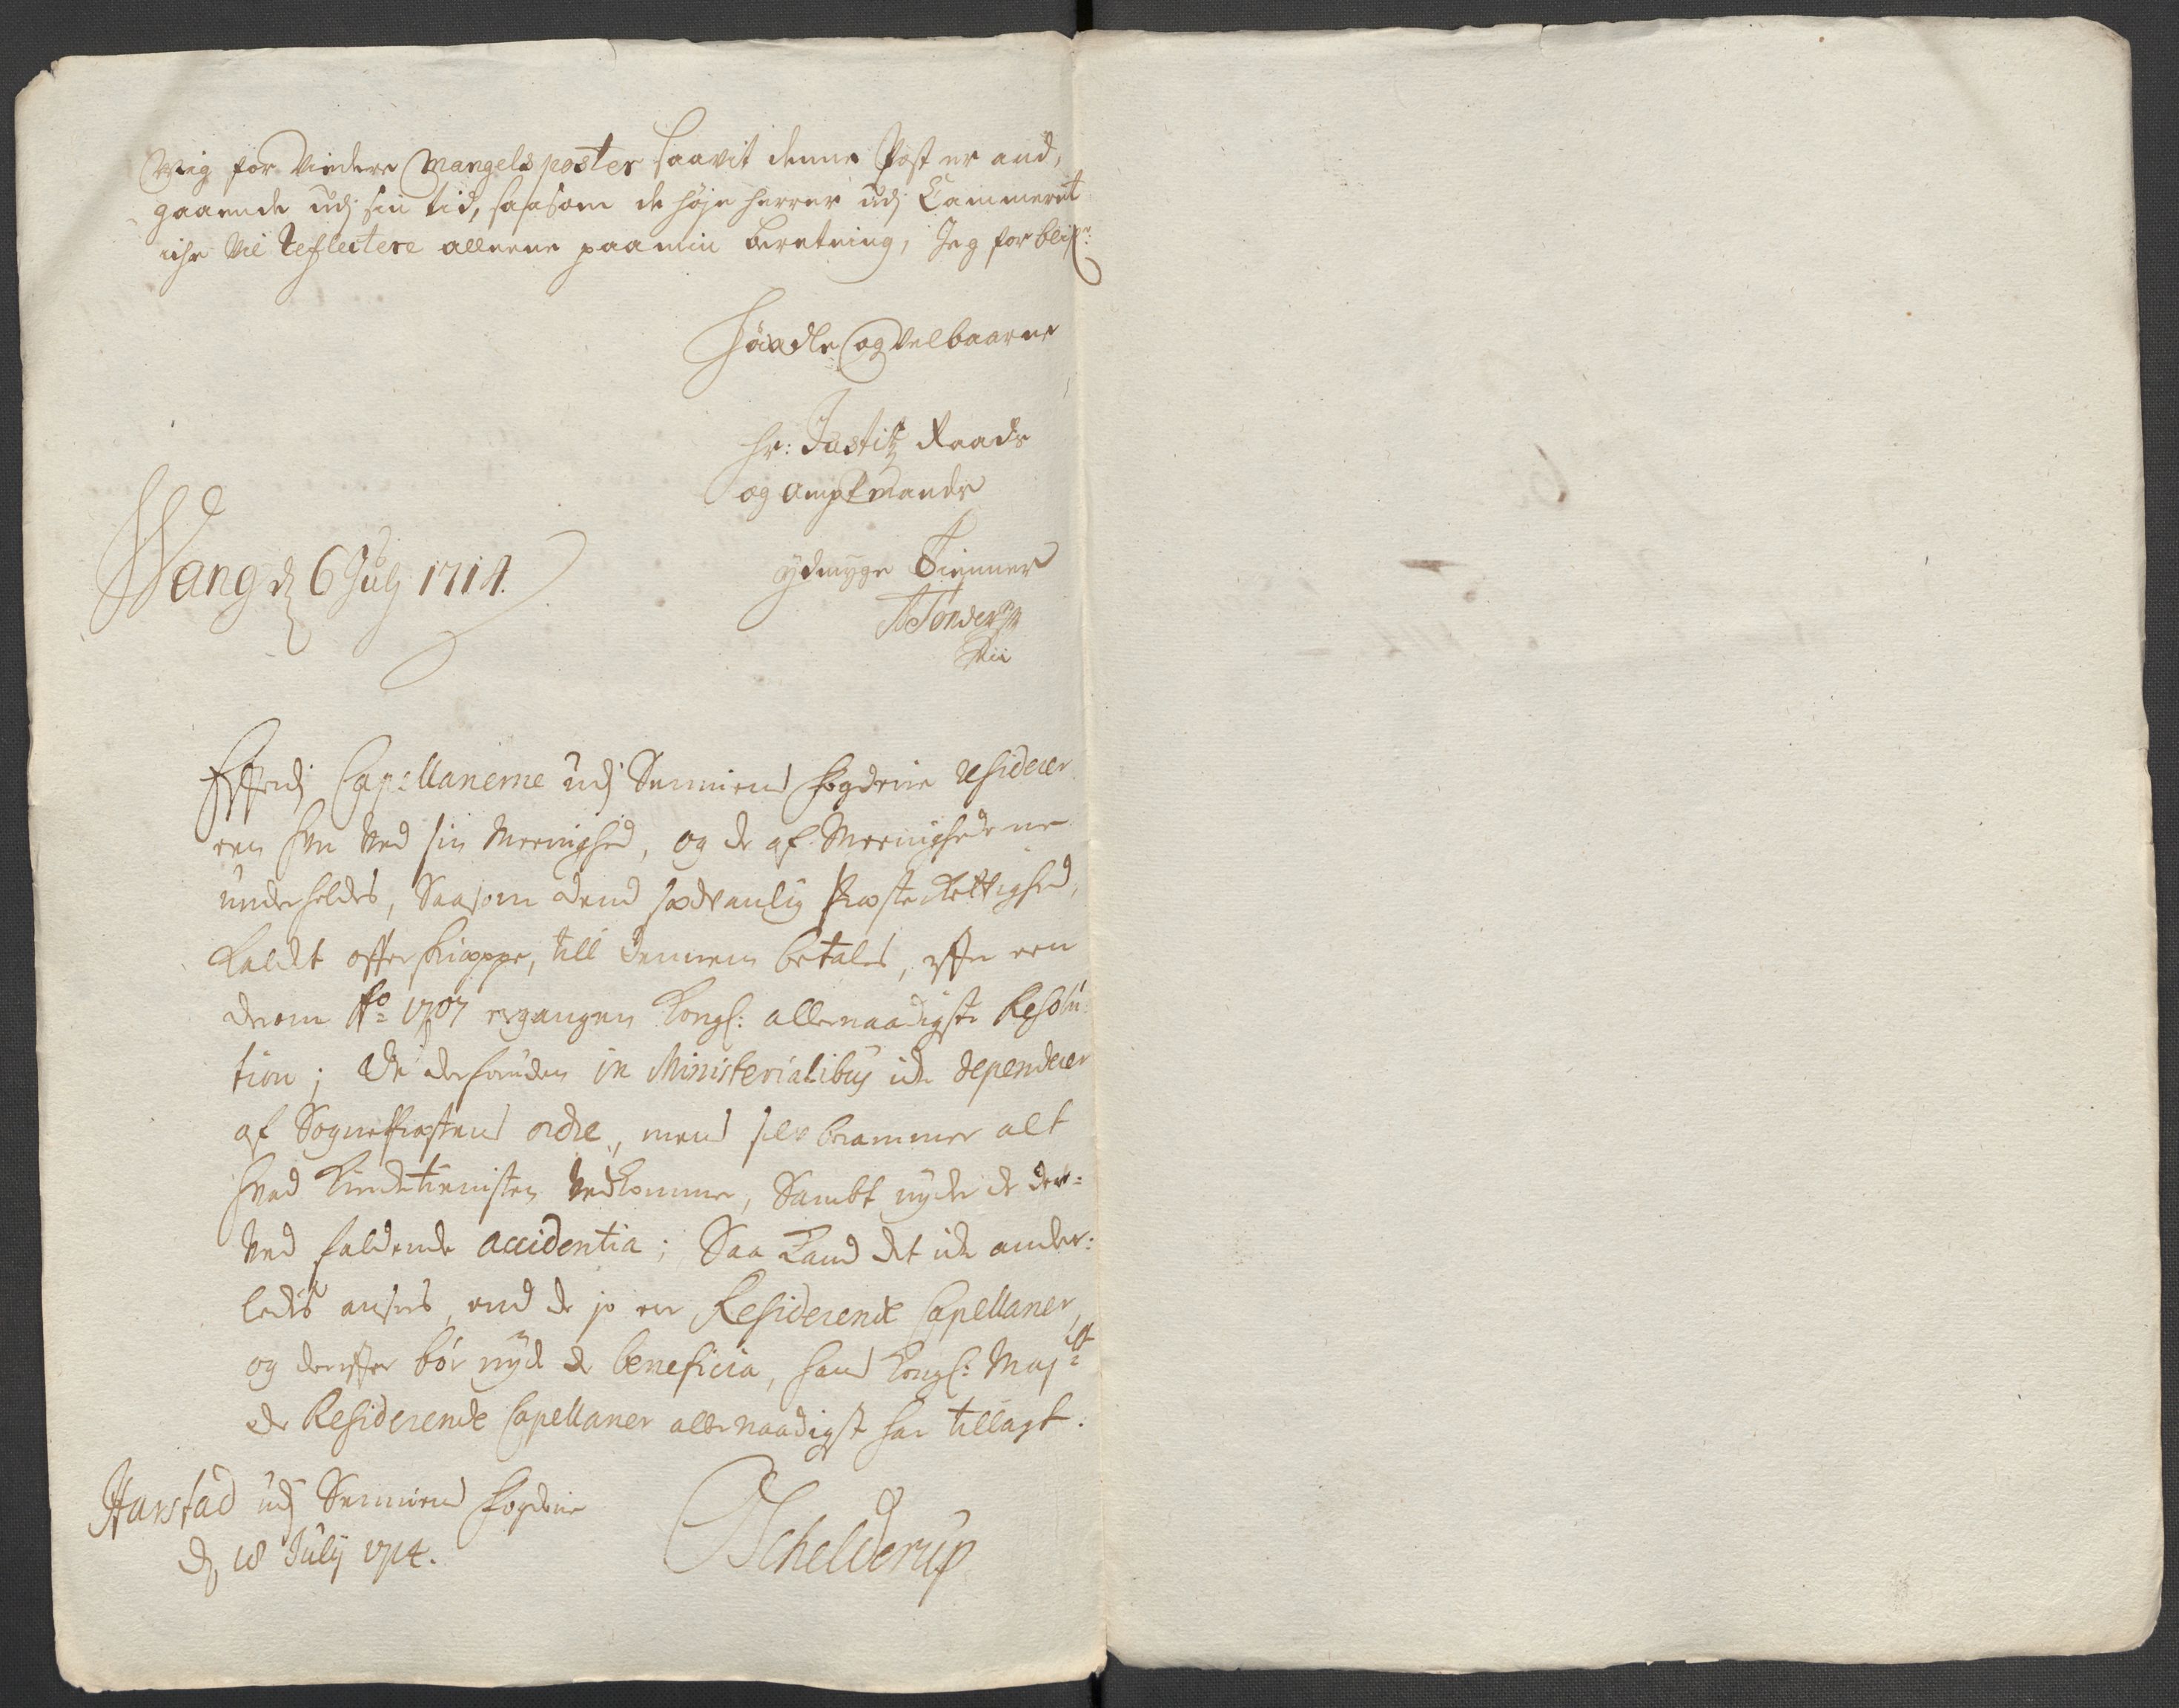 Mig for Viidere Mangels poster saavit denne Post er and,
gaaende udj sin tid, saasom de høje herrer udj Cammeret
iche Vil Reflectere alleene paa min beretning, Jeg forblifr:
Høyædle og Velbaarne
Hr: Justitz Raads
og Amptmands
ydmyge Tienner
Wang d 6 Julj 1714.
Tønder
Effterdj Capellanerne udj Senniens fogderie residerer
een hver Ved sin Meenighed, og de af Meenighederne
underholdes, Saasom dend sædvanlig Præste Rettighed,
Kaldet offer skieppe, till dennem betales, effter een
derom Ao 1707 ergangen Kongl: allernaadigste Resolu-
tion; De desforuden in Ministerialibus icke dependerer
af Sognepræstens ordre, mens self berammer alt
hvad Kircketienisten Vedkommer, Sambt nyder de der-
Ved faldende accidentia; Saa Kand det icke ander-
ledis ansees, end de jo er Residerende Capellaner,
og dereffter bør nyde de beneficia, hans Kongl: Majtt
de Residerende Capellaner allernaadigst har tillagt.
Harstad udj Senniens fogderie
d, 18 Julij 1714.
Schelderup